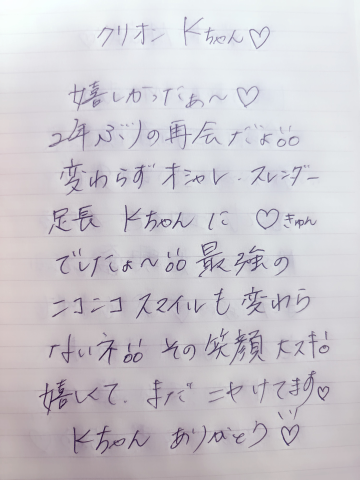 クリオン Kちゃん♡
嬉しかったぁ〜♡
2年ぶりの再会だょ!!
変わらずオシャレ・スレンダー
足長 Kちゃんに ♡きゅん
でしたょ〜!! 最強の
ニコニコスマイルも変わら
ないネ!! その笑顔大スキ!
嬉しくて、まだニヤけてます♡
Kちゃん ありがとう♡